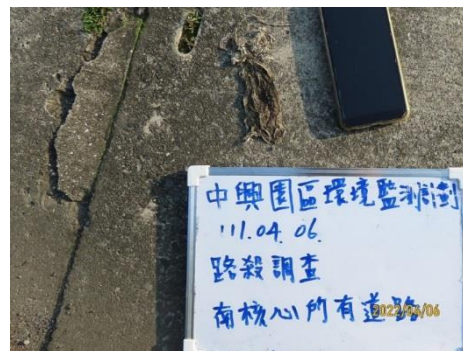 中興園區環境監測計劃
111.04.06.
路殺調查
南核心所有道路
2022/04/06